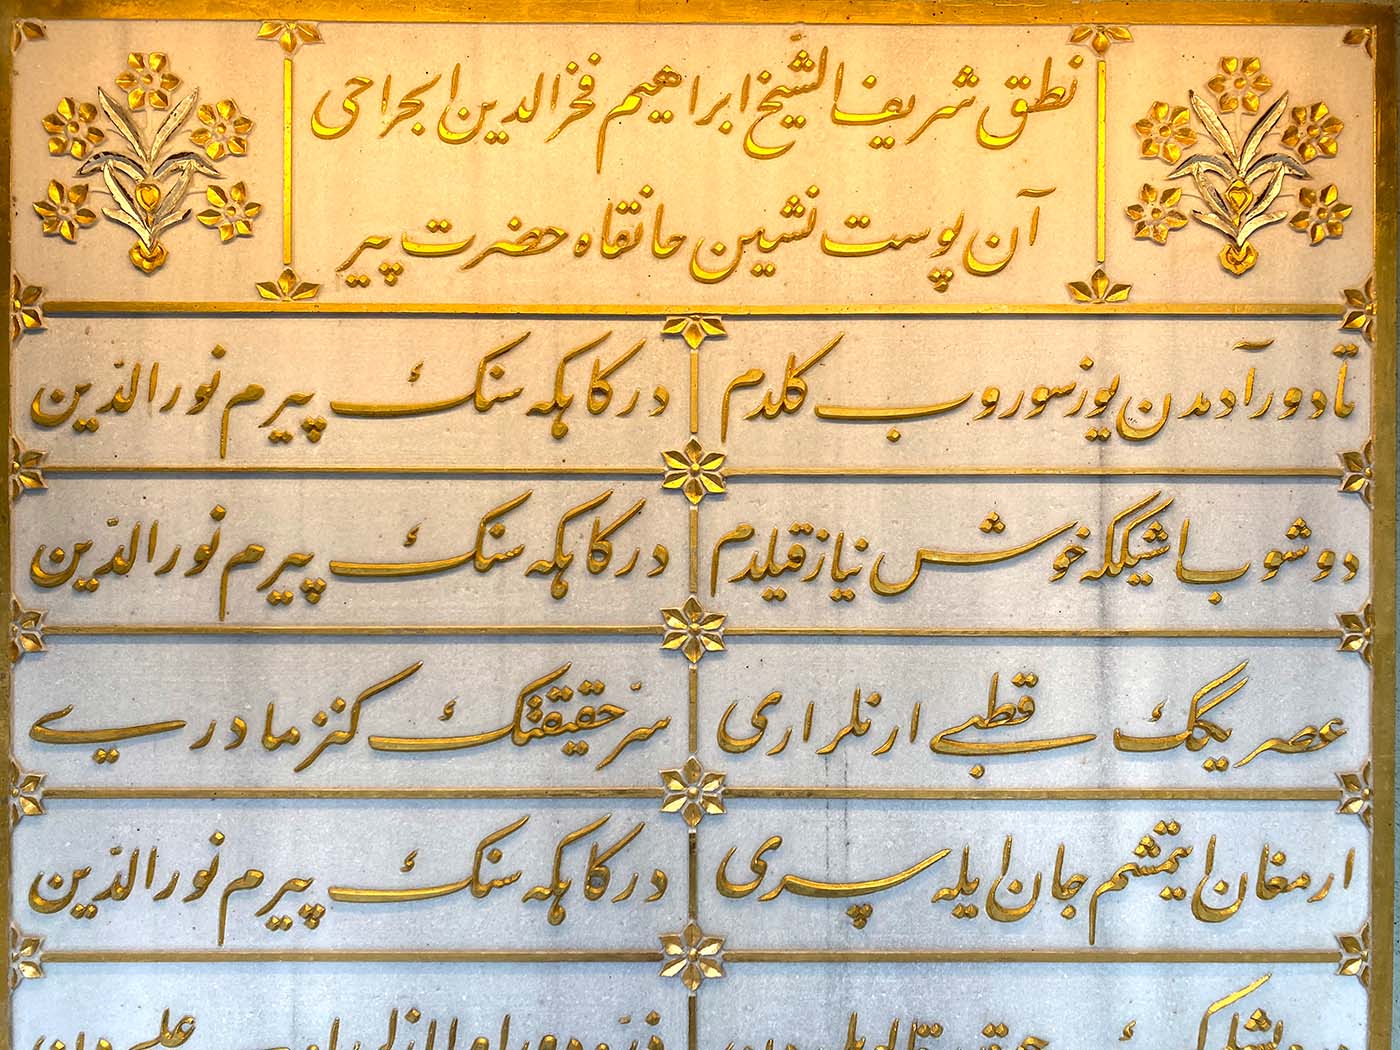 نطق شريف الشيخ ابراهيم فخر الدين الجراحى
آن پوست نشين خانقاه حضرت پير
تا دور آدمدن يوز سوروب كلدم
دركاهكه سنكئ پيرم نور الدّين
دوشوب باشيككه خوش نياز قيلدم
دركاهكه سنكئ پيرم نور الدّين
عصريكئ قطبى ارنلر ارى
سر حقيقتكئ كنز مادرى
ارمغان ايتمشم جان ايله سرى
دركاهكه سنكئ پيرم نور الدّين